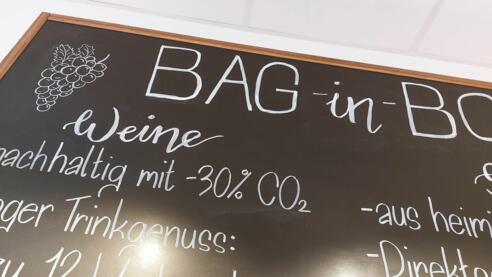 BAG-in-BO
Weine
nachhaltig mit -30% CO₂
nger Trinkgenuss:
zu 12
-aus heimi
-Direkt